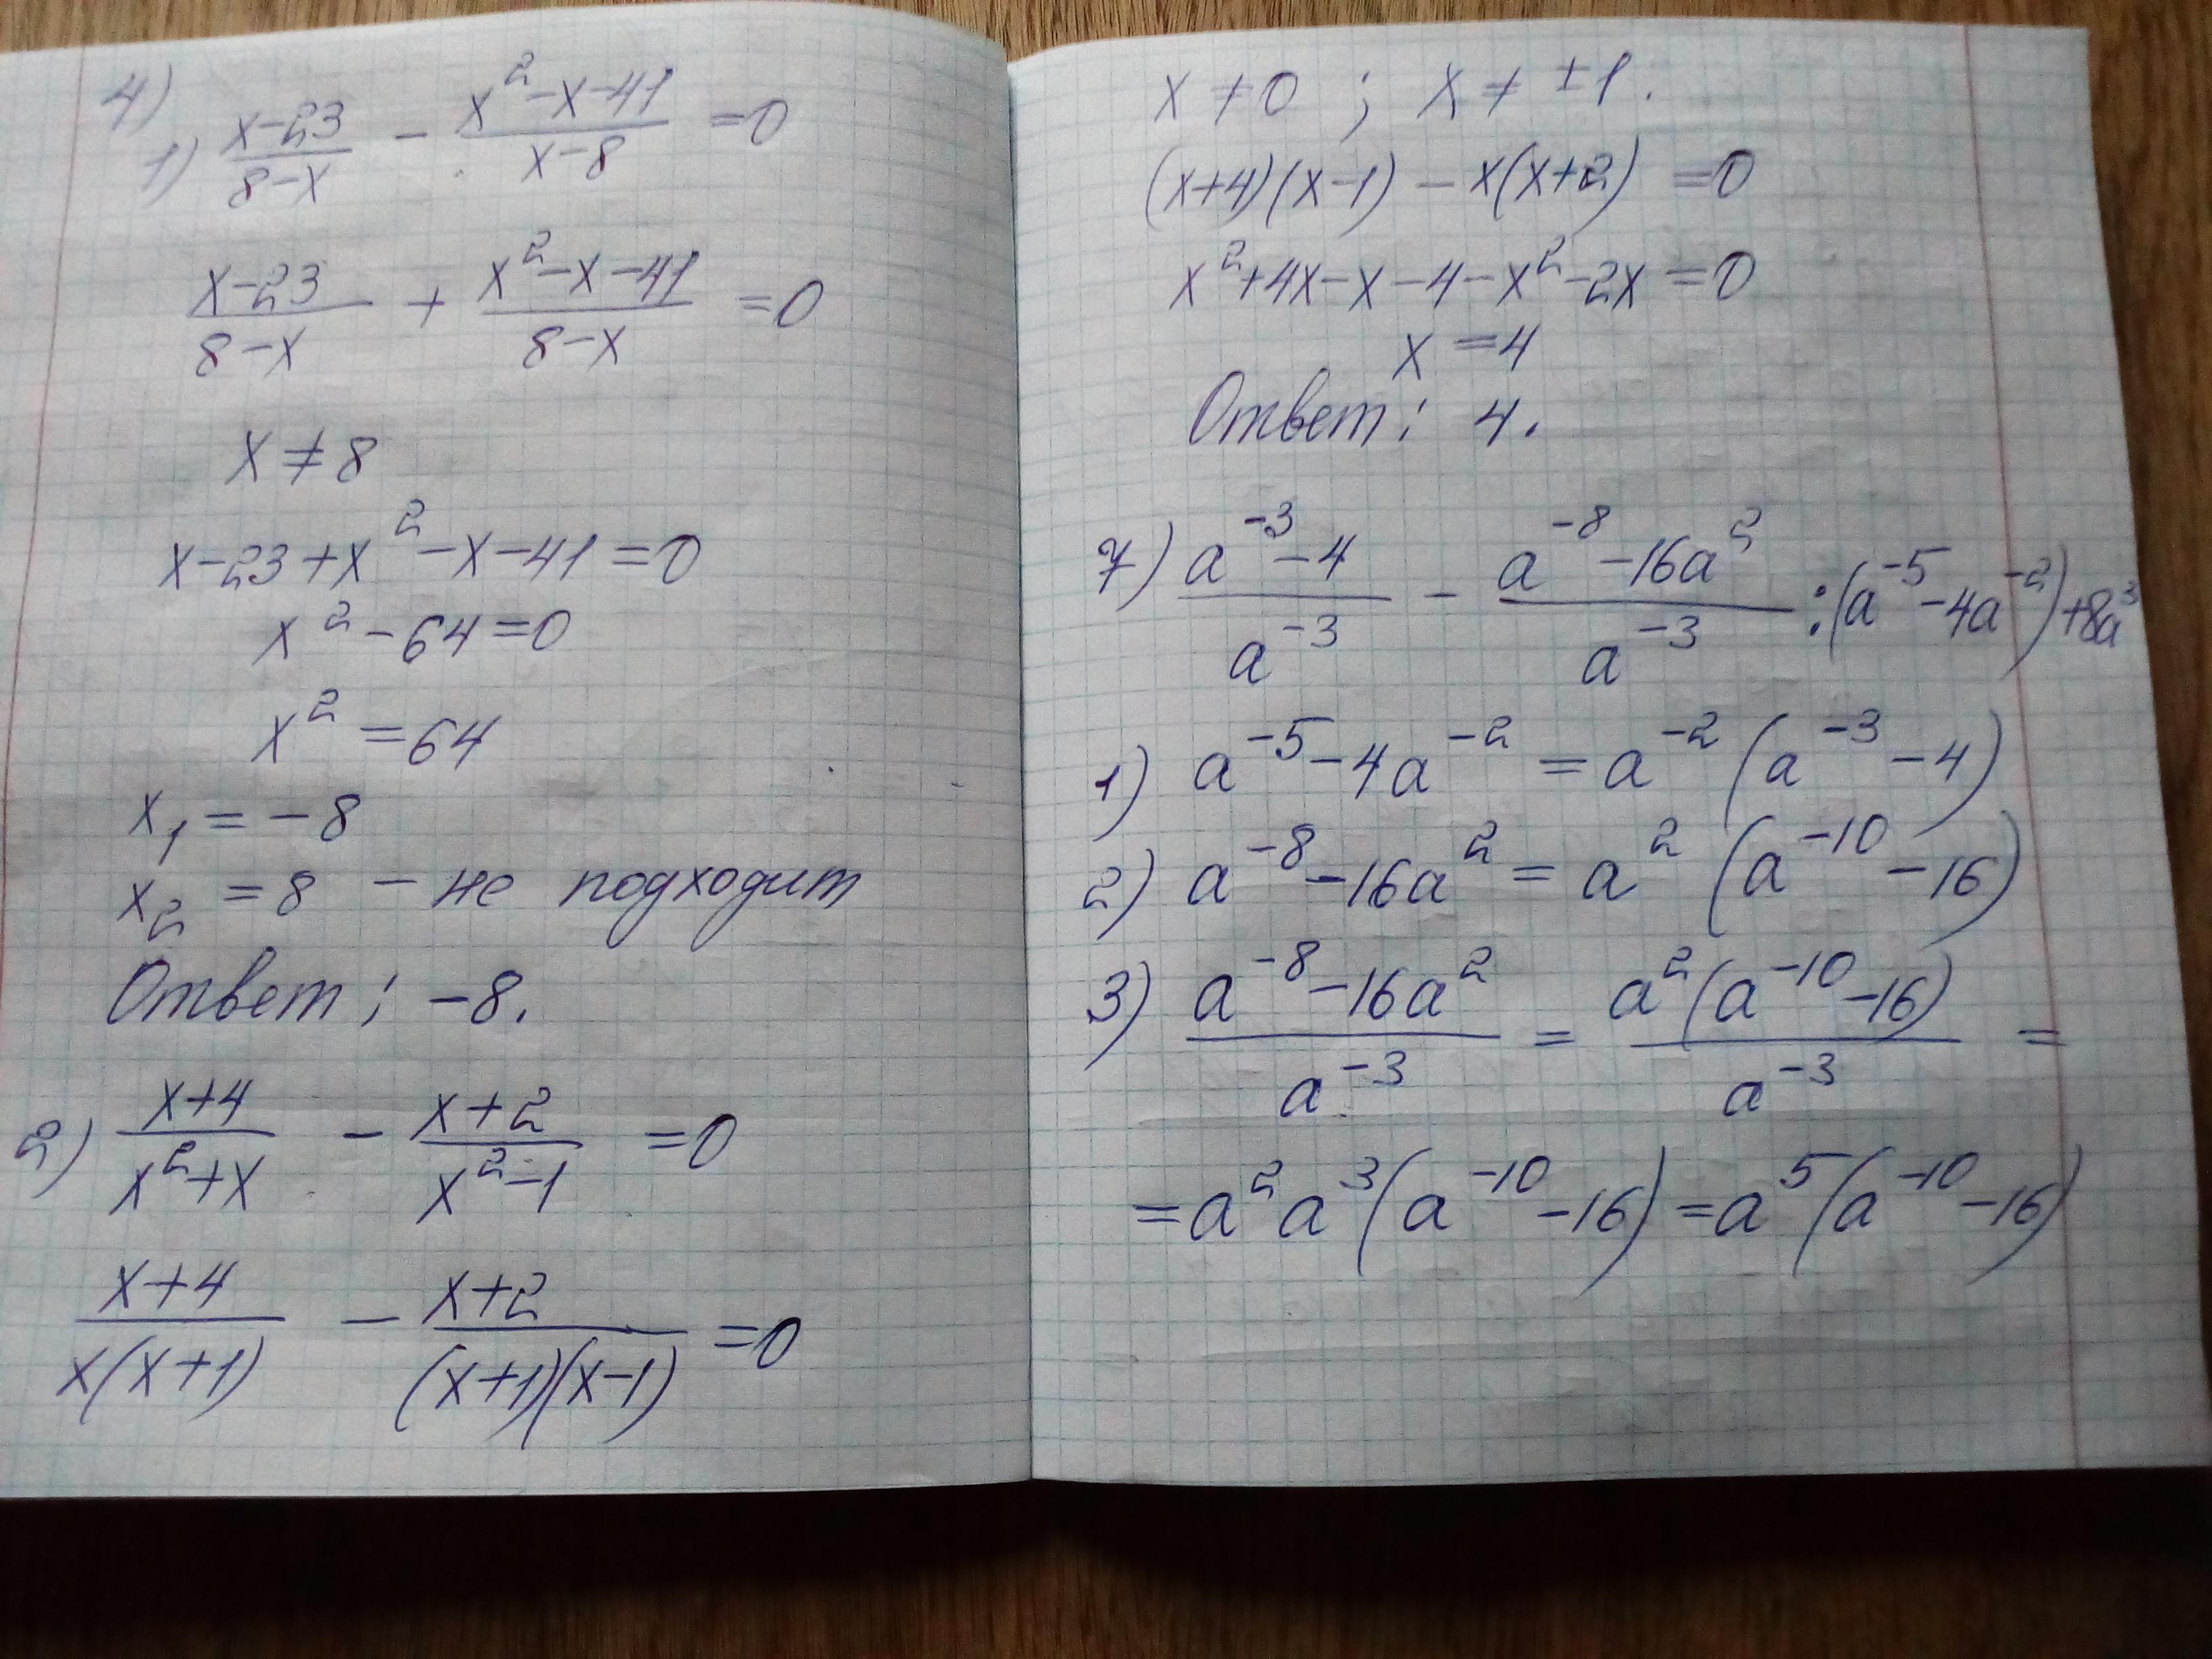 4)
1) (x-23)/(8-x) - (x²-x-41)/(x-8) =0
(x-23)/(8-x) + (x²-x-41)/(8-x) =0
x≠8
x-23+x²-x-41=0
x²-64=0
x²=64
x₁=-8
x₂=8 - не подходит
Ответ: -8.
2) (x+4)/(x²+x) - (x+2)/(x²-1) =0
(x+4)/(x(x+1)) - (x+2)/((x+1)(x-1)) =0
x≠0 ; x≠±1.
(x+4)(x-1)-x(x+2)=0
x²+4x-x-4-x²-2x=0
x=4
Ответ: 4.
7) (a⁻³-4)/a⁻³ - (a⁻⁸-16a²)/a⁻³ : (a⁻⁵-4a⁻²)+8a³
1) a⁻⁵-4a⁻²=a⁻²(a⁻³-4)
2) a⁻⁸-16a²=a²(a⁻¹⁰-16)
3) (a⁻⁸-16a²)/a⁻³ = a²(a⁻¹⁰-16)/a⁻³ =
=a²a³(a⁻¹⁰-16)=a⁵(a⁻¹⁰-16)